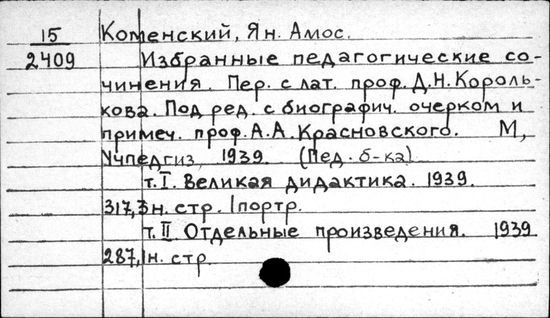 15 Коменский, Ян. Амос.
2409 Избранные педагогические со-
чинения. Пер. с лат. проф. Д.Н. Король-
кова. Под ред. с биографич. очерком и
примеч. проф. А.А. Красновского. М,
Учпедгиз, 1939. (Пед. б-ка)
т. I. Великая дидактика. 1939.
317,3 н. стр. 1 портр.
т. II Отдельные произведения. 1939
287,1 н. стр.